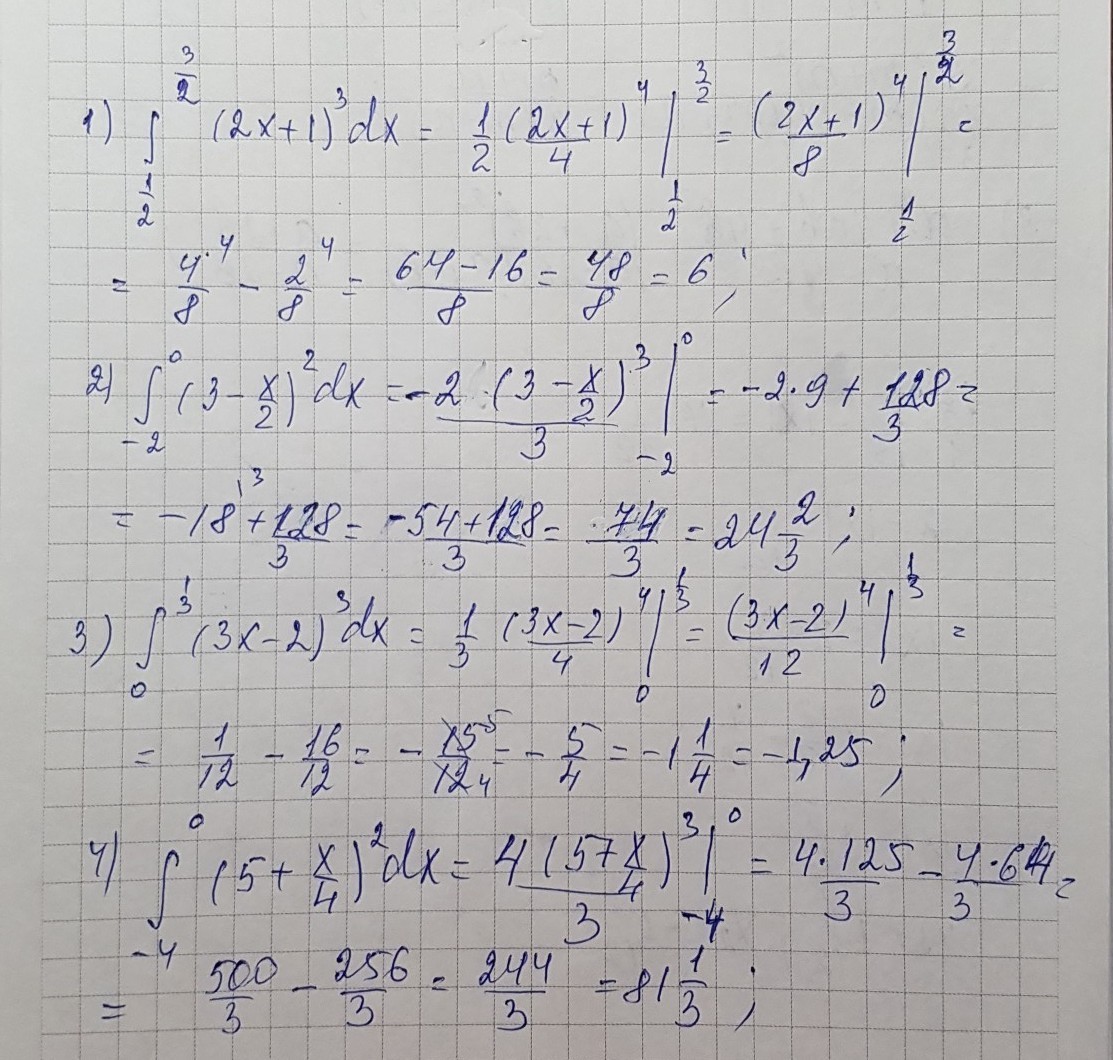 1) ∫_{1/2}^{3/2} (2x+1)³dx = 1/2 (2x+1)⁴/4 |_{1/2}^{3/2} = (2x+1)⁴/8 |_{1/2}^{3/2} =
= 4⁴/8 - 2⁴/8 = (64-16)/8 = 48/8 = 6 ;
2) ∫_{-2}^{0} (3 - x/2)²dx = -2·(3 - x/2)³/3 |_{-2}^{0} = -2·9 + 128/3 =
= -18^{\3} + 128/3 = (-54+128)/3 = 74/3 = 24 2/3 ;
3) ∫_{0}^{1/3} (3x-2)³dx = 1/3 (3x-2)⁴/4 |_{0}^{1/3} = (3x-2)⁴/12 |_{0}^{1/3} =
= 1/12 - 16/12 = - 15⁵/12₄ = - 5/4 = -1 1/4 = -1,25 ;
4) ∫_{-4}^{0} (5 + x/4)²dx = 4(5+x/4)³/3 |_{-4}^{0} = 4·125/3 - 4·64/3 =
= 500/3 - 256/3 = 244/3 = 81 1/3 ;